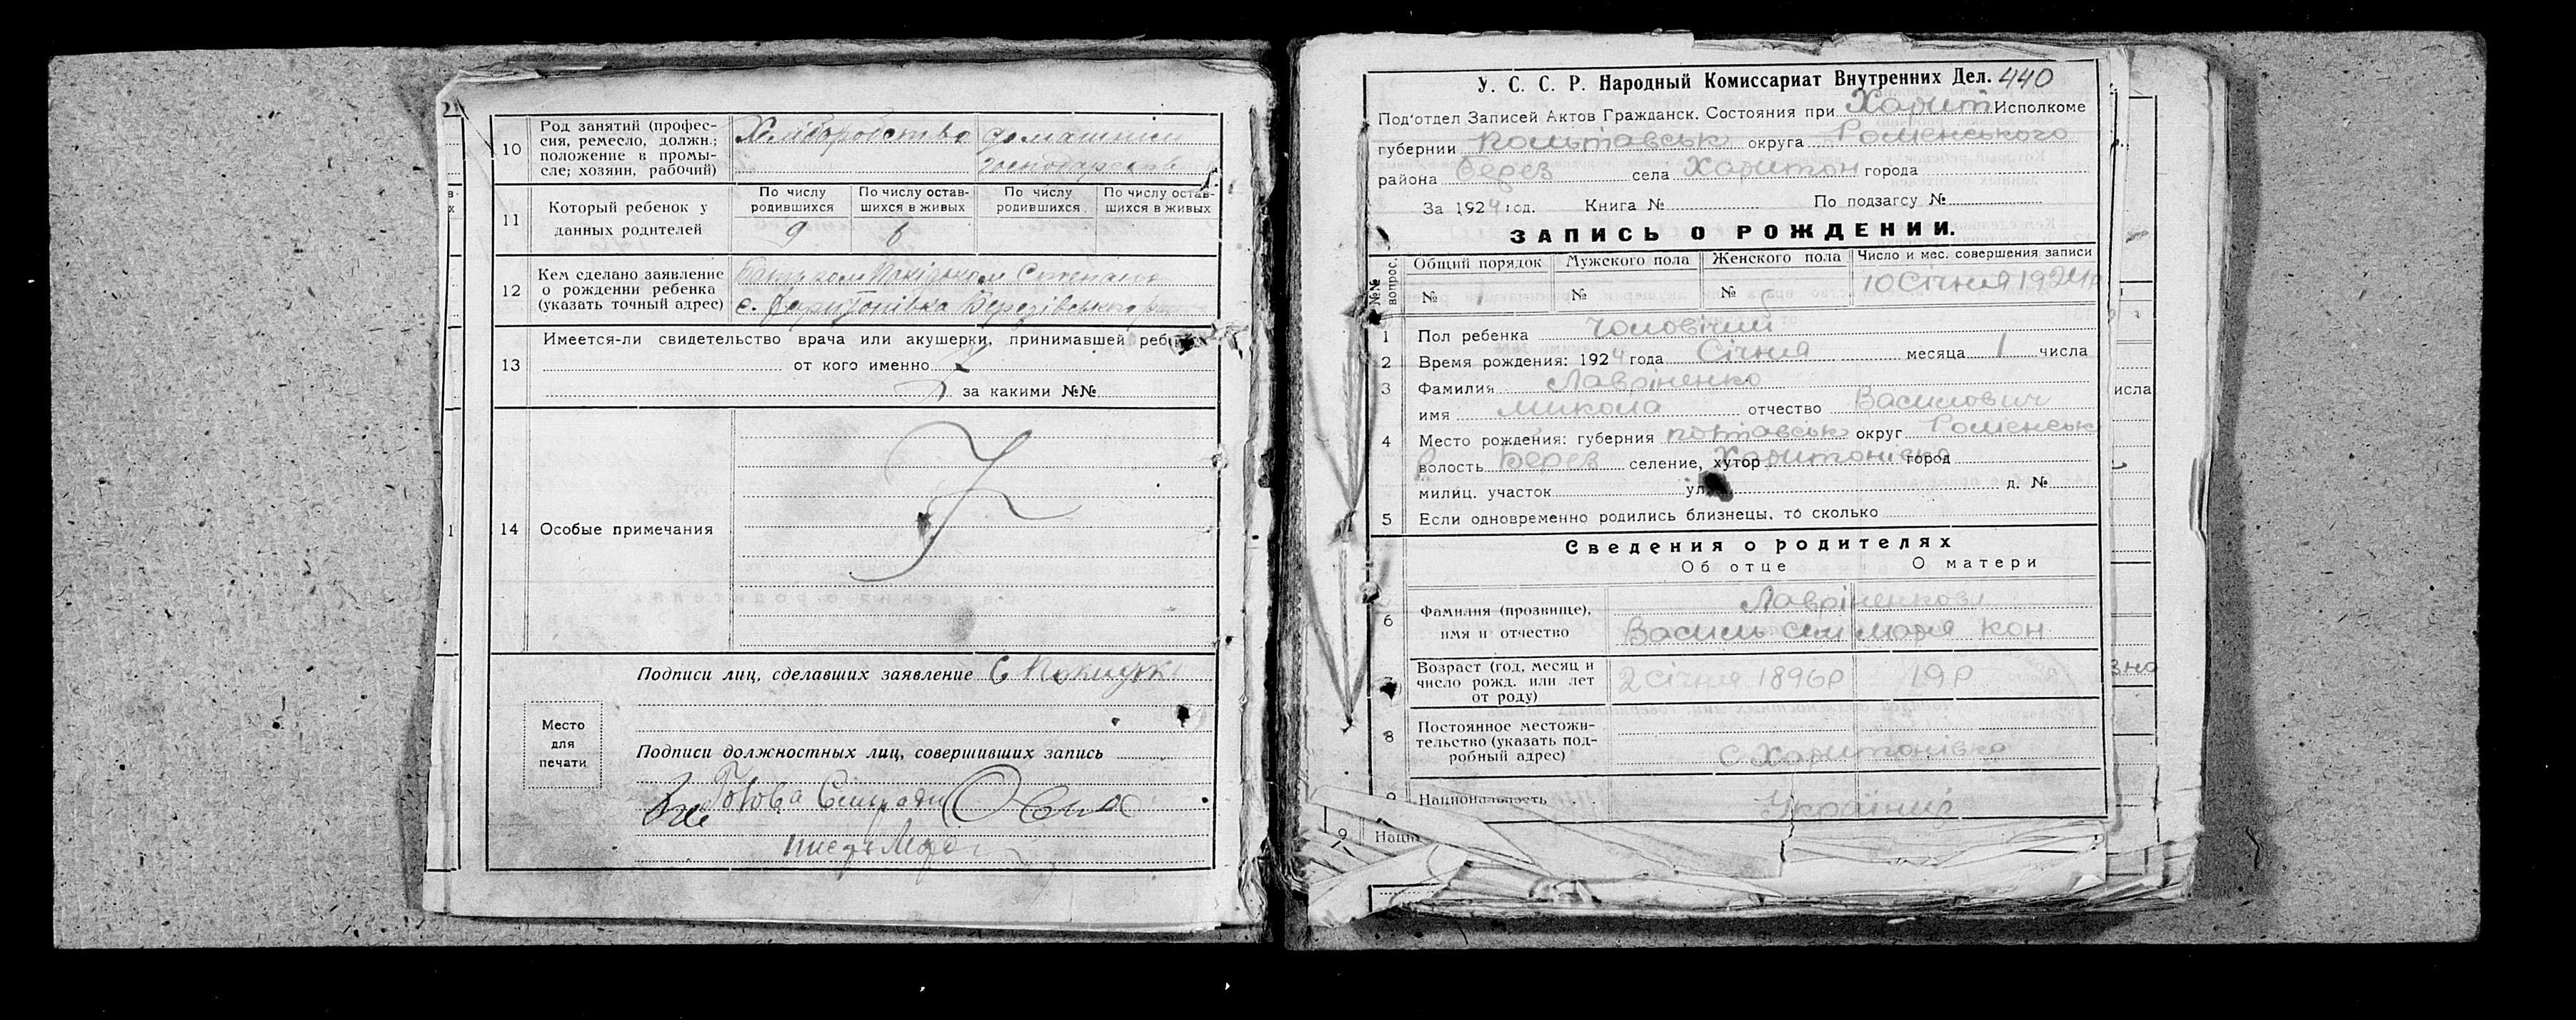 10
Род занятий (профес-
сия, ремесло, должн.;
положение в промы-
сле; хозяин, рабочий)
Хліборобство
домашнє
По числу
родившихся
По числу остав-
шихся в живых
По числу
родившихся
По числу остав-
шихся в живых
11
Который ребенок у
данных родителей
9
6
12
Кем сделано заявление
о рождении ребенка
(указать точный адрес)
Батьком
с. Харитонівка Березівського
13
Имеется-ли свидетельство врача или акушерки, принимавшей
от кого именно
за какими №№
14
Особые примечания
Подписи лиц, сделавших заявление С
Место
для
печати
Подписи должностных лиц, совершивших запись
Голова Сільради
У. С. С. Р. Народный Комиссариат Внутренних Дел. 440
Под'отдел Записей Актов Гражданск. Состояния при Харит Исполкоме
губернии Полтавськ округа Роменського
района Берез села Харитон города
За 1924 год. Книга № По подзагсу №
ЗАПИСЬ О РОЖДЕНИИ.
№№ вопрос.
Общий порядок
Мужского пола
Женского пола
Число и мес. совершения записи
№ 1
№
№
10 Січня 1924р
1 Пол ребенка чоловічий
2 Время рождения: 1924 года Січня месяца 1 числа
3 Фамилия Лавріненко
имя Микола отчество Василович
4 Место рождения: губерния полтавськ округ Роменськ
волость Берез селение, хутор Харитонівка город
милиц. участок ул. д. №
5 Если одновременно родились близнецы, то сколько
Сведения о родителях
Об отце О матери
6
Фамилия (прозвище),
имя и отчество
Лавріненкові
Василь Марія Кон
7
Возраст (год, месяц и
число рожд. или лет
от роду)
2 січня 1896р
19р
8
Постоянное местожи-
тельство (указать под-
робный адрес)
с Харитонівка
9
Национальность
Українці
9
Наци